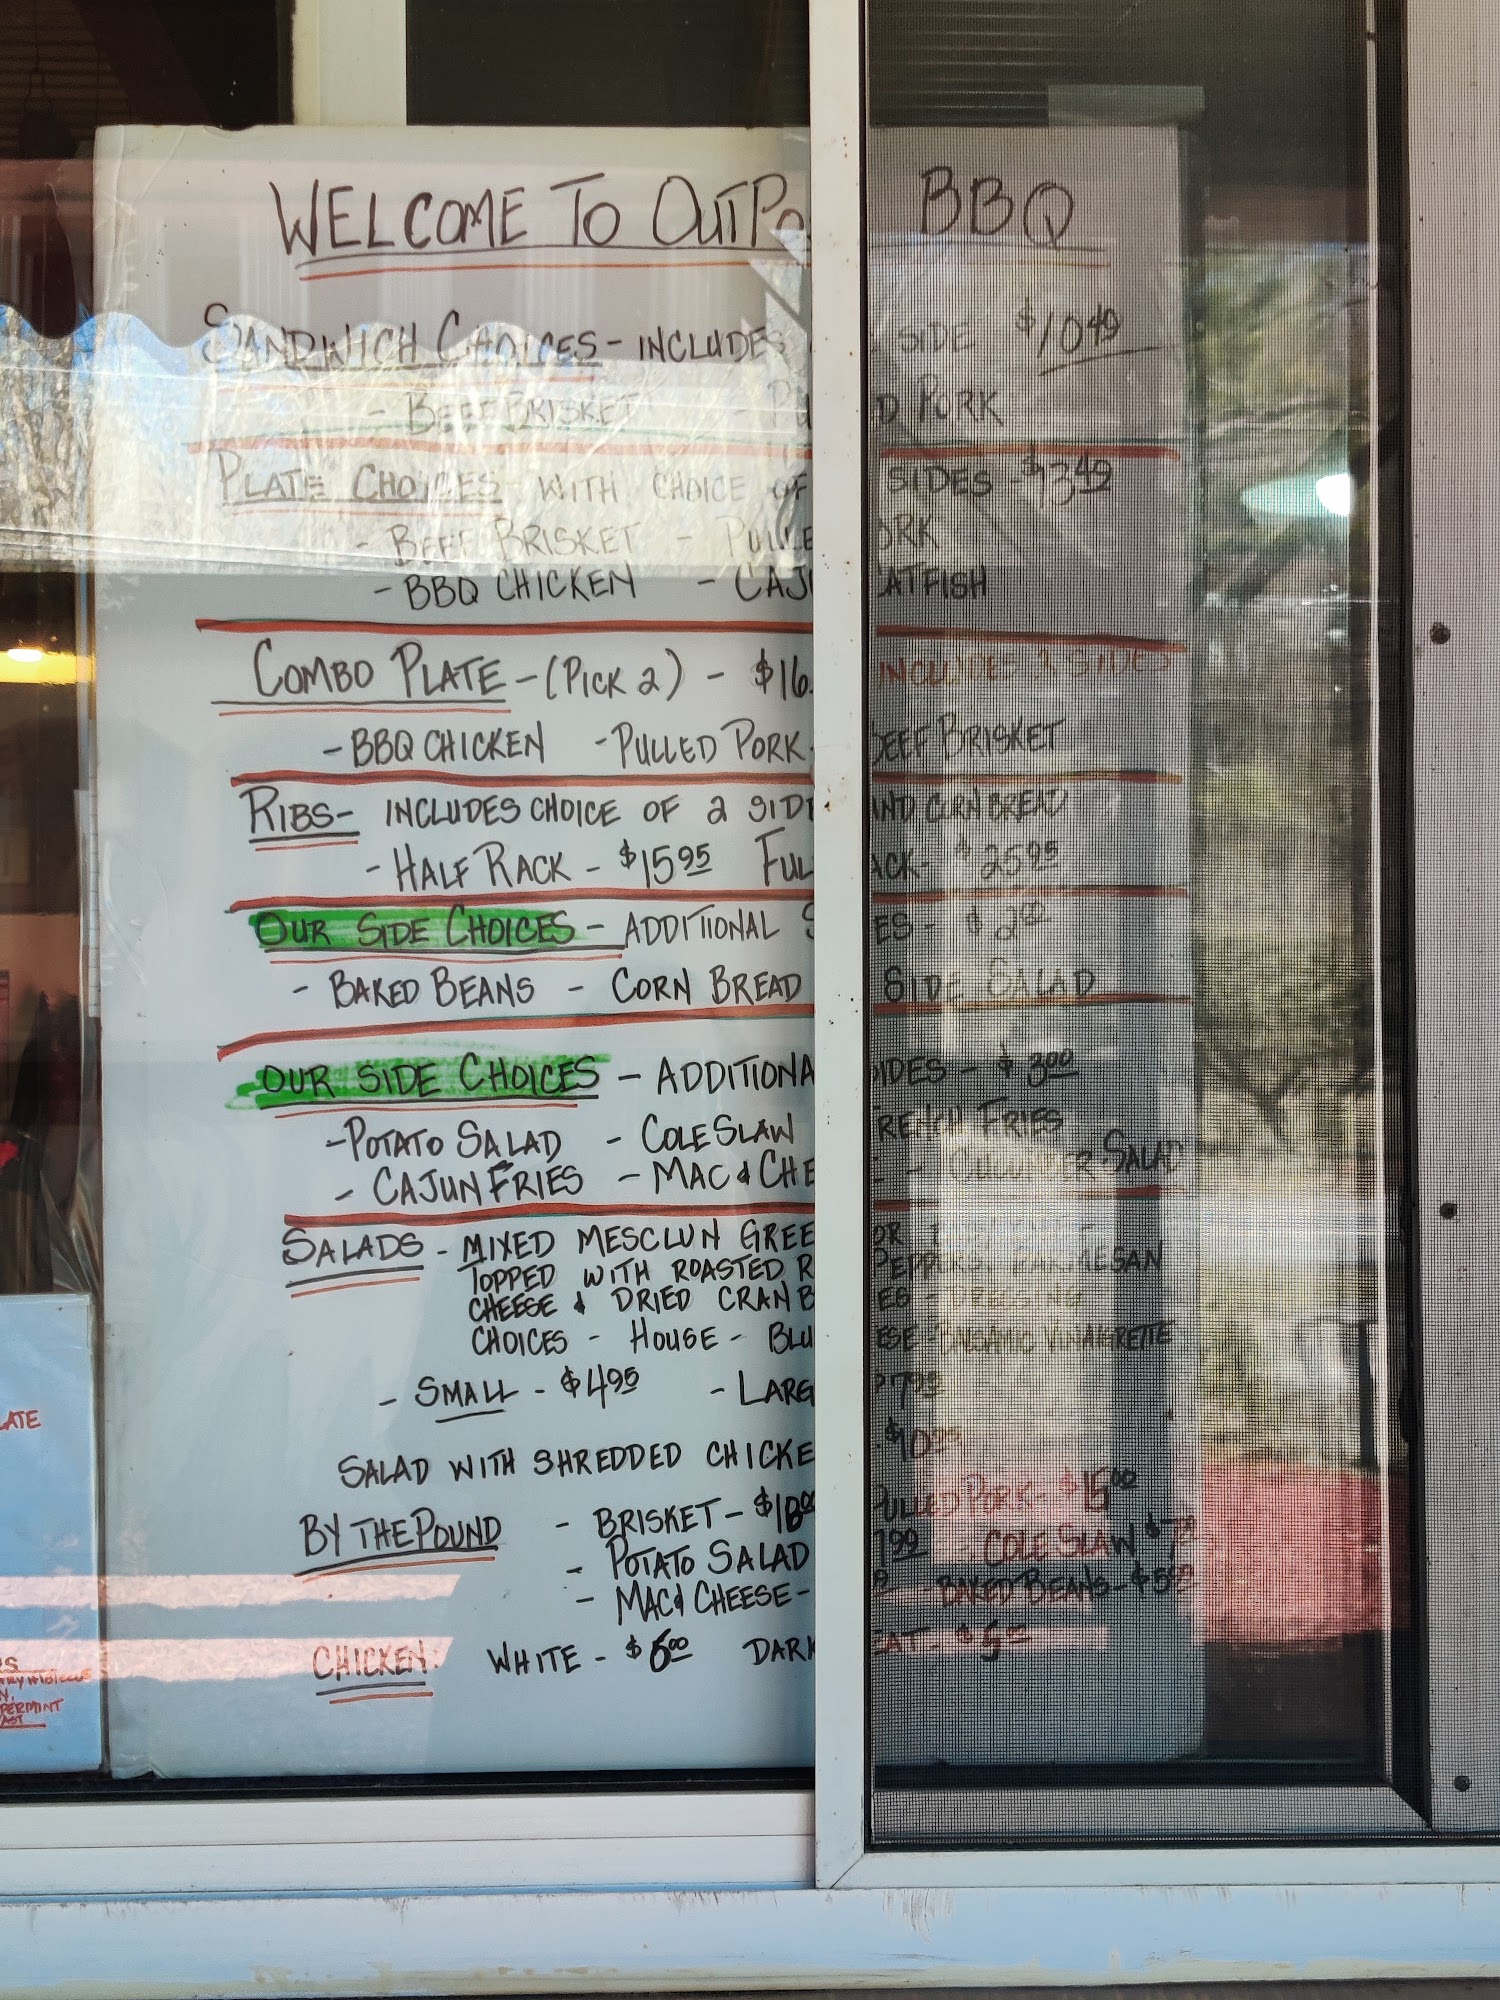 WELCOME TO OUTPO BBQ
SANDWICH CHOICES - INCLUDES SIDE $10.49
- BEEF BRISKET - PU D PORK
PLATE CHOICES - WITH CHOICE OF SIDES - $13.49
- BEEF BRISKET - PULLE ORK
- BBQ CHICKEN - CAJU ATFISH
COMBO PLATE - (PICK 2) - $16. INCLUDES 3 SIDES
- BBQ CHICKEN - PULLED PORK - BEEF BRISKET
RIBS - INCLUDES CHOICE OF 2 SIDE AND CORN BREAD
- HALF RACK - $15.95 FUL ACK - $25.95
OUR SIDE CHOICES - ADDITIONAL S ES - $2.00
- BAKED BEANS - CORN BREAD SIDE SALAD
OUR SIDE CHOICES - ADDITIONA SIDES - $3.00
- POTATO SALAD - COLE SLAW FRENCH FRIES
- CAJUN FRIES - MAC & CHE E - CUCUMBER SALAD
SALADS - MIXED MESCLUN GREE OR
TOPPED WITH ROASTED R PEPPERS, PARMESAN
CHEESE & DRIED CRANB ES - DRESSING
CHOICES - HOUSE - BLU ESE - BALSAMIC VINAIGRETTE
- SMALL - $4.95 - LARG $7.95
SALAD WITH SHREDDED CHICKE $10.95
BY THE POUND - BRISKET - $18.00 PULLED PORK - $15.00
- POTATO SALAD 7.99 - COLE SLAW
- MAC & CHEESE - - BAKED BEANS -
CHICKEN: WHITE - $6.00 DARK EAT - $5.00
LATE
PERMINT